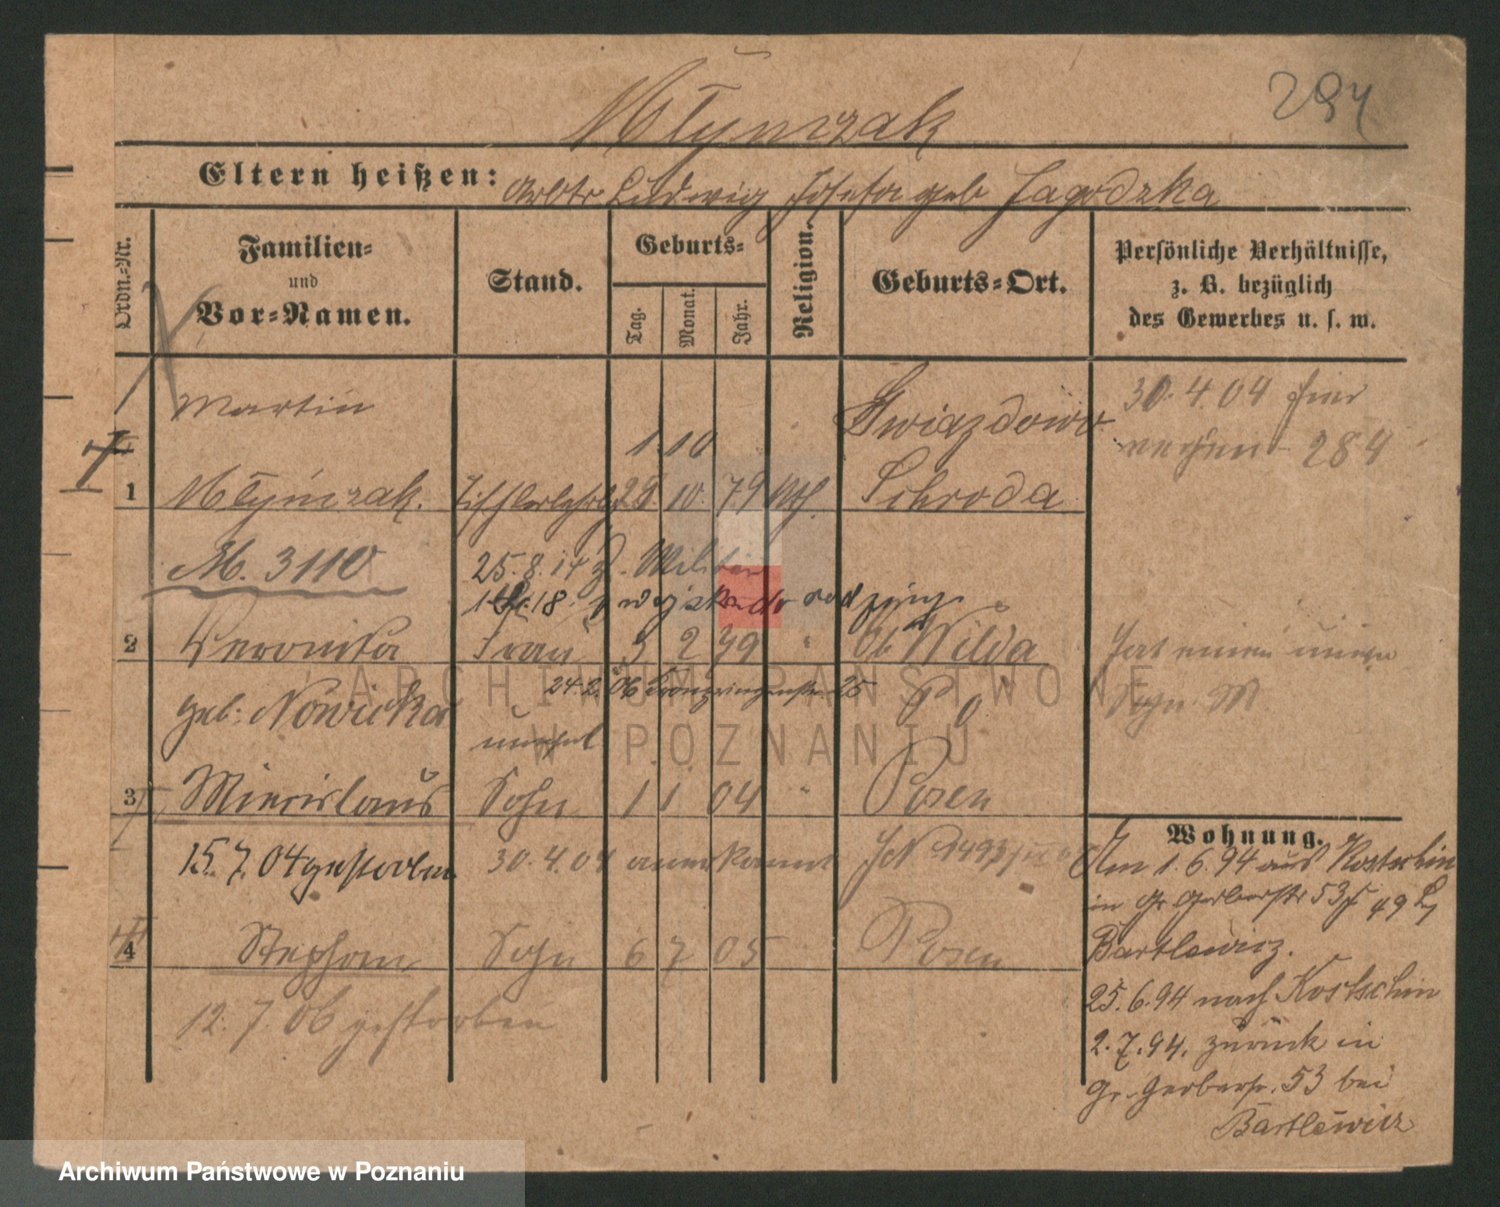 Młynczak
Eltern heißen: Arbtr Ludwig Josefa geb Jagodzka
Ordn.-Nr.
Familien-
und
Vor-Namen.
Stand.
Geburts-
Tag.
Monat.
Jahr.
Religion.
Geburts-Ort.
Persönliche Verhältnisse,
z. B. bezüglich
des Gewerbes u. s. w.
Martin
1 10
Gwiazdowo
30.4.04
284
1 Młynczak. 25 10. 79 kth. Schroda
M. 3110
25.8.14 z. Militär
18.
2 Veronika Frau 3 2 79 " Ob Wilda
geb: Nowicka
24.2.06 Kronprinzenstr. 25
Hat einen
3 Miecislaus Sohn 1 1 04 " Posen
15.7.04 gestorben
30.4.04 anerkannt
4 Stephan Sohn 6 7 05 Posen
12.7.06 gestorben
Wohnung.
Am 1.6.94 aus Kostschin
in Gr Gerberstr 53
Bartlewicz.
25.6.94 nach Kostschin
2.7.94. zurück in
Gr. Gerberstr. 53 bei
Bartlewicz
ARCHIWUM PAŃSTWOWE
W POZNANIU
Archiwum Państwowe w Poznaniu